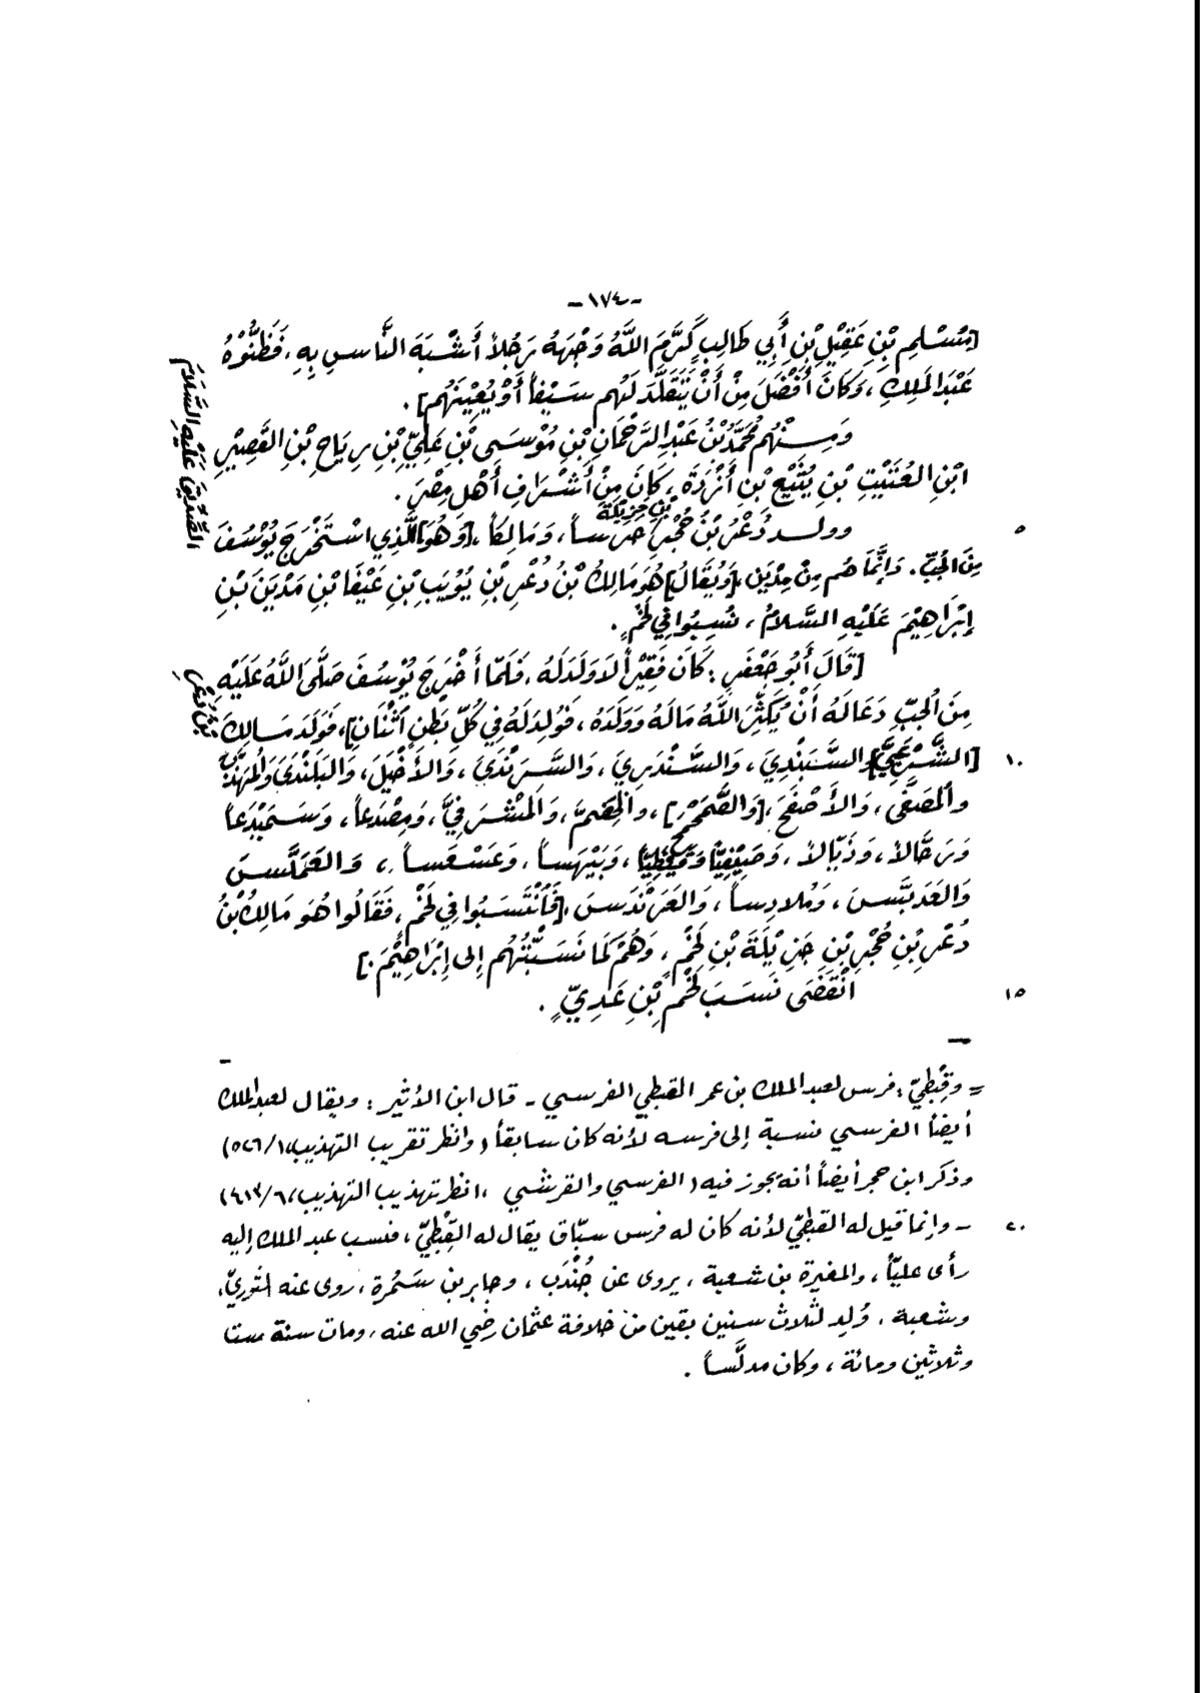 -١٧٤-
[مُسْلِمِ بْنِ عَقِيْلِ بْنِ أَبِي طَالِبٍ كَرَّمَ اللَّهُ وَجْهَهُ رَجُلاً أَشْبَهَ النَّاسِ بِهِ، فَظَنُّوْهُ
عَبْدَ المَلِكِ، وَكَانَ أَفْضَلَ مِنْ أَنْ يَتَقَلَّدَ لَهُم سَيْفاً أَوْ يُعِيْنَهُم].
وَمِنْهُم مُحَمَّدُ بْنُ عَبْدِ الرَّحْمَانِ بْنِ مُوْسَى بْنِ عَلِيِّ بْنِ رِيَاحِ بْنِ القَصِيْرِ
ابْنِ العُتَيْبِ بْنِ يُثَيْعِ بْنِ أَزْدَةَ، كَانَ مِنْ أَشْرَافِ أَهْلِ مِصْرَ.
وولد دُعْرُ بْنُ حُجْرِ بْنِ جَزِيْلَةَ حرساً، وَمَالِكاً، [وَهُوَ] الَّذِي اسْتَخْرَجَ يُوْسُفَ
الصِّدِّيْقَ عَلَيْهِ السَّلَامُ
٥
مِنَ الجُبِّ. وَإِنَّمَا هُم مِنْ مِدْيَنَ، [وَيُقَالُ] هُوَ مَالِكُ بْنُ دُعْرِ بْنِ يُوَيْبِ بْنِ عَيْفَا بْنِ مَدْيَنَ بْنِ
إِبْرَاهِيْمَ عَلَيْهِ السَّلَامُ، نُسِبُوا فِي لَخْمٍ.
[قَالَ أَبُو جَعْفَرٍ: كَانَ فَقِيْراً لاَ وَلَدَ لَهُ، فَلَمَّا أَخْرَجَ يُوْسُفَ صَلَّى اللَّهُ عَلَيْهِ
مِنَ الجُبِّ دَعَا لَهُ أَنْ يُكَثِّرَ اللَّهُ مَالَهُ وَوَلَدَهُ، فَوُلِدَ لَهُ فِي كُلِّ بَطْنٍ اثْنَانِ]، فَوَلَدَ مَالِكُ
بْنُ دُعْرٍ
[الشَّرْعَبِيَّ] والسَّبَنْدِيَ، وَالسَّنْدَرِيَ، وَالسَّرَنْدَيَ، وَالأَخْيَلَ، وَالبَلَنْدَىَ وَالمُهَذَّبَ
١٠
وَالمُصَفَّى، وَالأَصْفَحَ، [وَالصَّمَحْمَحَ]، وَالخِضَمَّ، وَالمَشْرَفِيَّ، وَمِصْدَعاً، وَسَمَيْدَعاً
وَرَحَّالاً، وَذَيَّالاً، وَبَيْهَساً، وَعَسْعَساً، وَالعَمَلَّسَ
وَالعَدَبَّسَ، وَمُلَادِساً، وَالعَرَنْدَسَ، [فَانْتَسَبُوا فِي لَخْمٍ، فَقَالُوا هُوَ مَالِكُ بْنُ
دُعْرِ بْنِ حُجْرِ بْنِ جَزِيْلَةَ بْنِ لَخْمٍ، وَهُمْ كَمَا نَسَبْتُهُم إِلى إِبْرَاهِيْمَ.]
انْقَضَى نَسَبَ لَخْمِ بْنِ عَدِيٍّ.
١٥
= وقِبْطِيّ: فرس لعبد الملك بن عمر القبطي الفرسي - قال ابن الأثير: ويقال لعبد الملك
أيضاً الفرسي نسبة إلى فرسه لأنه كان سابقاً (وانظر تقريب التهذيب، ٥٢٦/١)
وذكر ابن حجر أيضاً أنه يجوز فيه (الفرسي والقرشي، انظر تهذيب التهذيب، ٤١٣/٦)
- وإنما قيل له القبطيّ لأنه كان له فرس سبّاق يقال له القِبْطِيّ، فنسب عبد الملك إليه
٢٠
رأى عليّاً، والمغيرة بن شعبة، يروى عن جُنْدَب، وجابر بن سَمُرة، روى عنه الثوريّ،
وشعبة. وُلِد لثلاث سنين بقين من خلافة عثمان رضي الله عنه، ومات سنة ست
وثلاثين ومائة، وكان مدلَّساً.